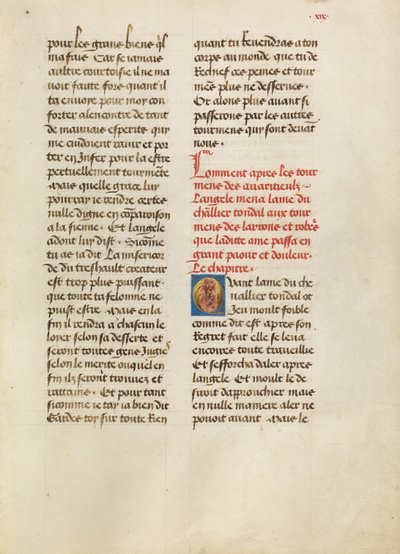 ·xix·
pour les grans biens q̃l
ma fais Car se iamais
aultre courtoisie il ne ma
uoit faitte fors quant il
ta enuoye pour moy con
forter alencontre de tant
de mauuais esperits qui
me cuidoient rauir et por
ter en Infer pour la estre
perpetuellement tourmẽte
Mais quelle grace luy
pourray ie rendre certes
nulle digne en cõparoison
a la sienne · Et langele
adont luy dist · Sicõme
tu as ia dit La misericor
de du treshault createur
est trop plus puissant
que toute ta felonnie ne
puist estre · Mais en la
fin il rendra a chascun le
loyer selon sa desserte et
seront toutes gens Iugies
selon le merite ouquel en
fin ilz serõt trouuez et
rattains · Et pour tant
sicomme ie tay ia bien dit
Gardes toy sur toute Rien
quant tu Reuendras a ton
corps au monde que tu de
Rechief ces peines et tour
mẽs plus ne desserues ·
Or alons plus auant si
passerons par les autres
tourmens qui sont deuãt
nous ·
Comment apres les tour
mens des auaricieulz ~
Langele mena lame du
chãllier tondal aux tour
mens des larrons et robeᵉs
que ladite ame passa en
grant paour et douleur ·
Le chapitre ·
Quant lame du che
uallier tondal ot
Ieu moult foible
comme dit est apres son
Regret fait elle se leua
encores toute trauaillie
Et sefforcha daler apres
langele Et moult le de
siroit dapprouchier mais
en nulle maniere aler ne
pouoit auant · Mais le